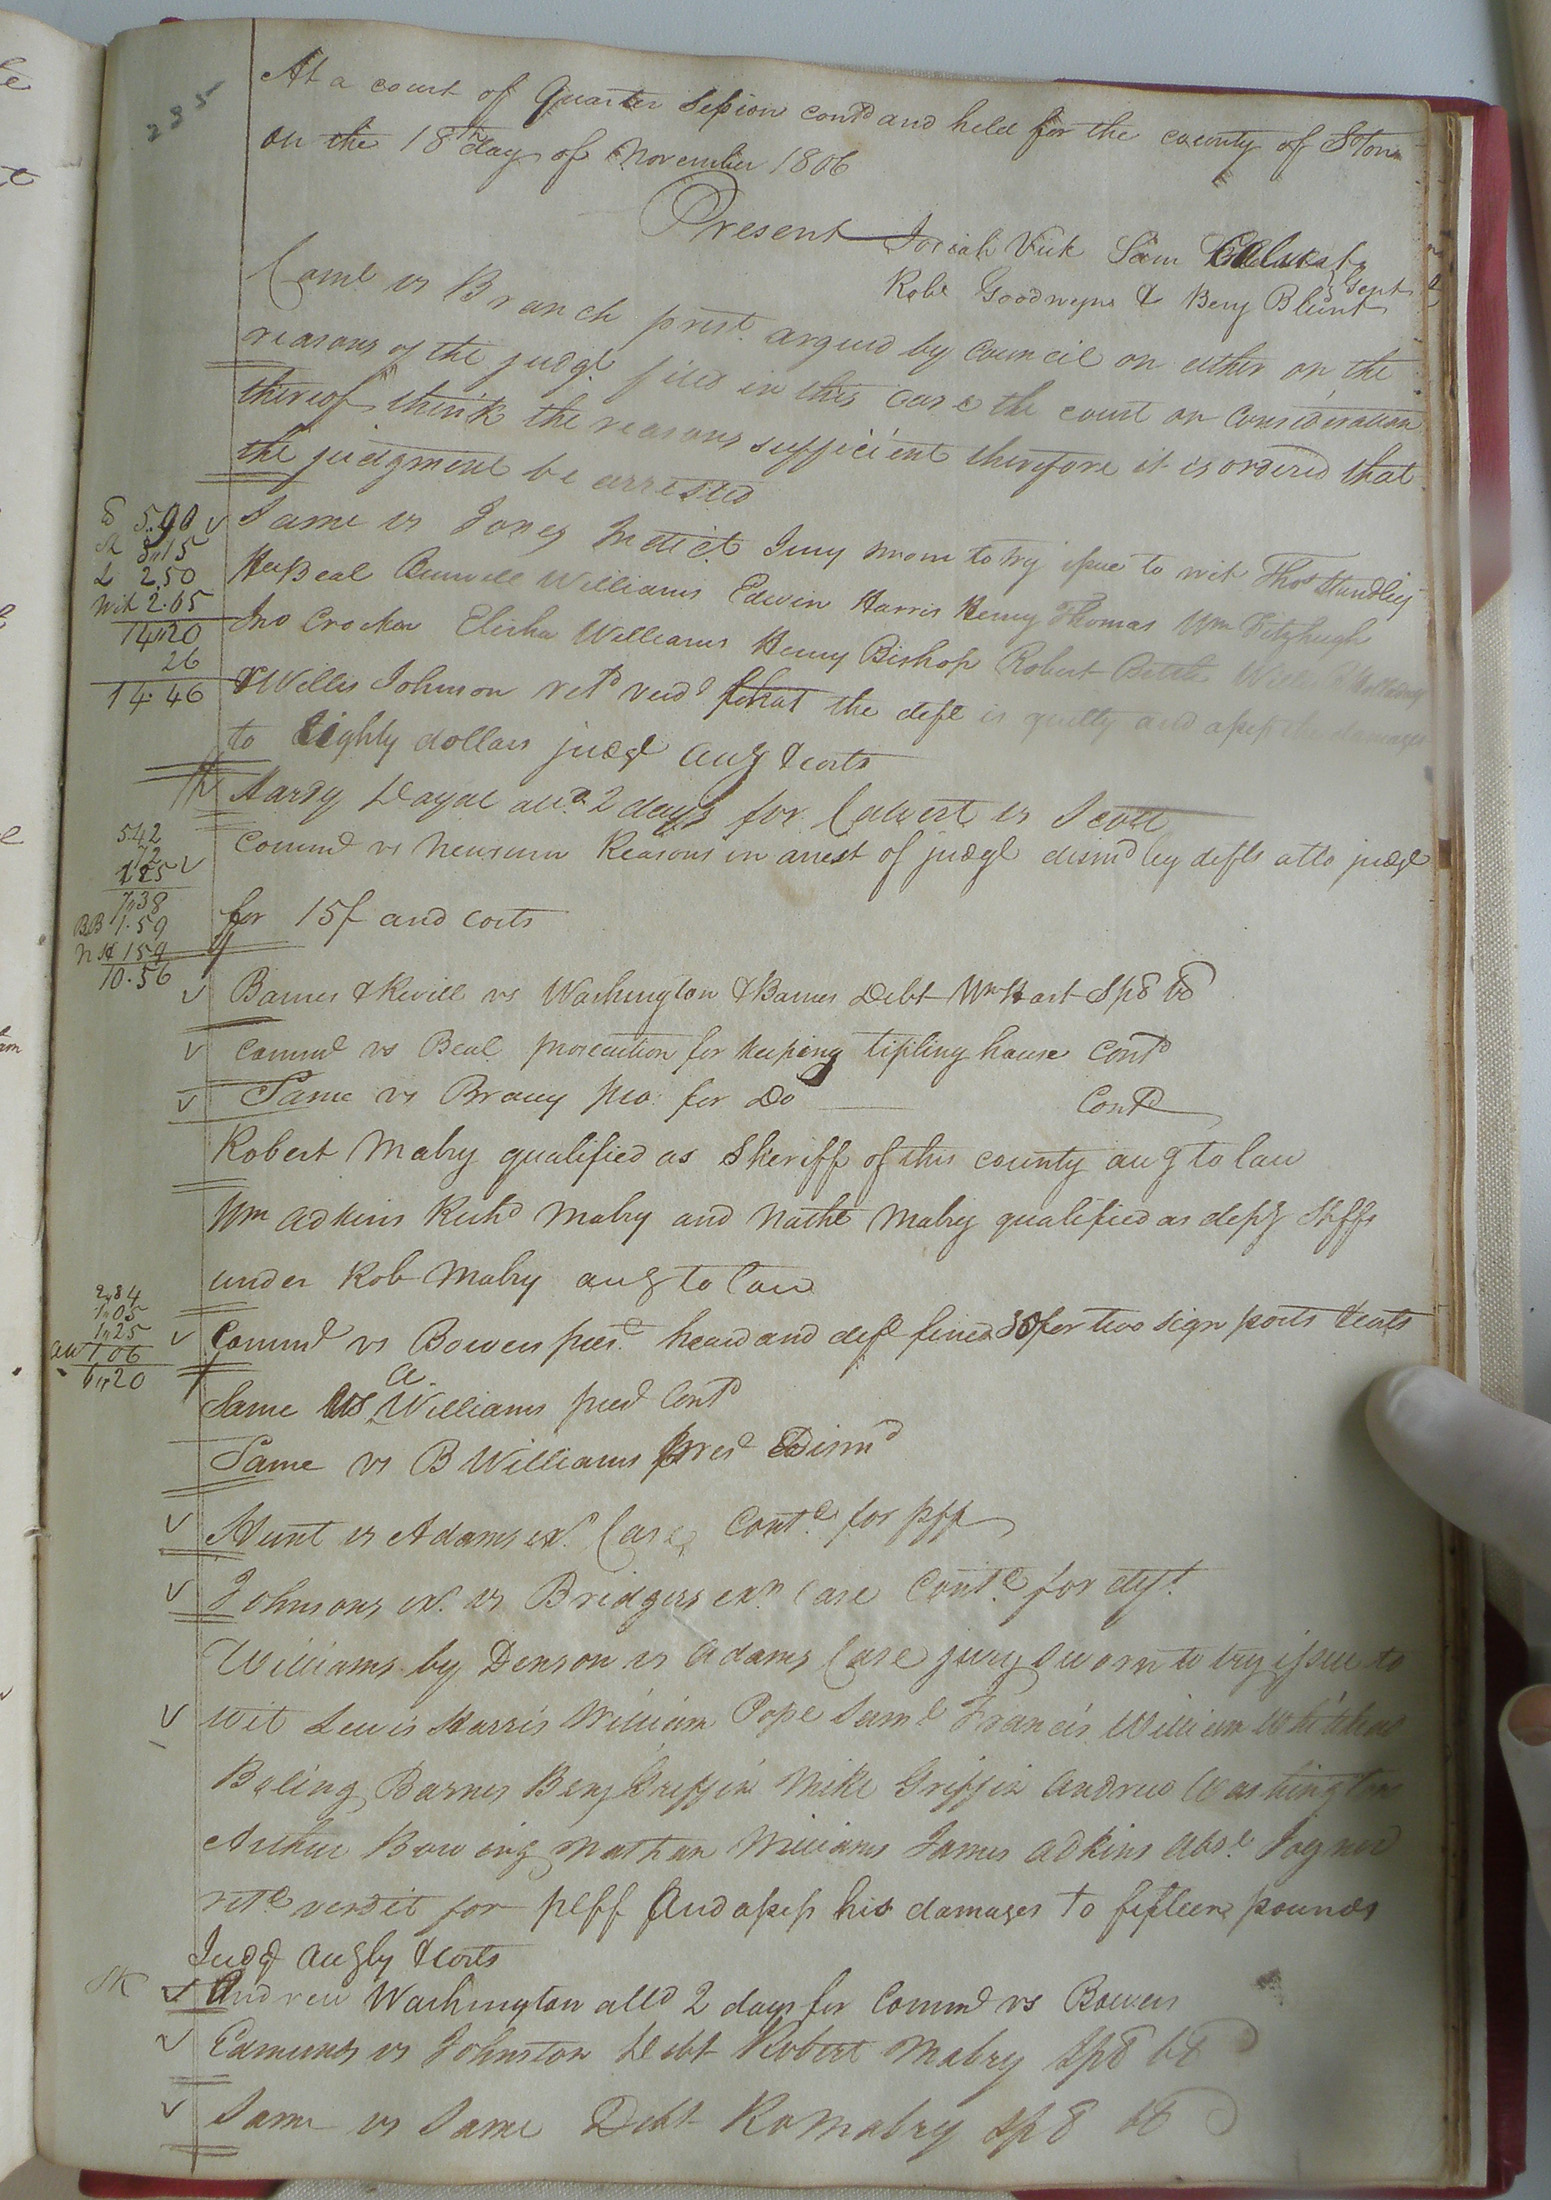 235
At a court of Quarter Session contd and held for the county of Soton
on the 18th day of November 1806
Present Josiah Vick Sam
Robt Goodwyn & Benj Blunt Gent
Comd vs Branch prest. argued by Council on either on the
reasons of the judgt filed in this case the court on consideration
thereof think the reasons sufficient therefore it is ordered that
the judgment be arrested
5.90 Same vs Jones Indict Jury sworn to try issue to wit Thos Standley
8,,15
L 2.50 Beal Williams Edwin Harris Henry Thomas Wm Fitzhugh
Wit 2.65
14,,20 Jno Crocker Elisha Williams Henry Bishop Robert
26
14.46 & Willis Johnson retd verd that the deft is guilty and assess the damages
to Eighty dollars judgt aug & costs
Hardy alld 2 days for Calvert vs Scott
542
72
125
7,38
Commd vs Newsum Reasons in arrest of judgt dismd by defts atto judgt
BB 1.59 for 15/ and costs
NH 159
10.56
Barnes & Kevill vs Washington & Barnes Debt Wm Hart Sp8 bd
Commd vs Beal prosecution for keeping tipling house Contd
Same vs Brauy pro: for Do Contd
Robert Mabry qualified as Sheriff of this county aug to law
Wm Adkins Richd Mabry and Nathl Mabry qualified as depy Shffs
under Rob Mabry aug to law
2,84
1,,05
1,,25
Commd vs Bowers prest heard and deft fined 30/ for two sign posts & costs
1.06
6,,20
Same vs A. Williams prest Contd
Same vs B Williams prest Dismd
Hunt vs Adams exr. Case Contd for plff
Johnsons exr. vs Bridgers exr. Case Contd for deft
Williams by Denson vs Adams Case jury sworn to try issue to
wit Lewis Harris William Pope Saml Francis William Whithead
Boling Barnes Benj Griffin Mike Griffin Andrew Washington
Arthur Bowing Nathan Williams James Adkins Absl. Joyner
retd verdit for plff and assess his damages to fifteen pounds
Judgt aug ly & costs
Andrew Washington alld 2 days for Commd vs Bowers
Edmunds vs Johnston Debt Robert Mabry Sp8 bd
Same vs Same Debt Ro Mabry Sp8 bd